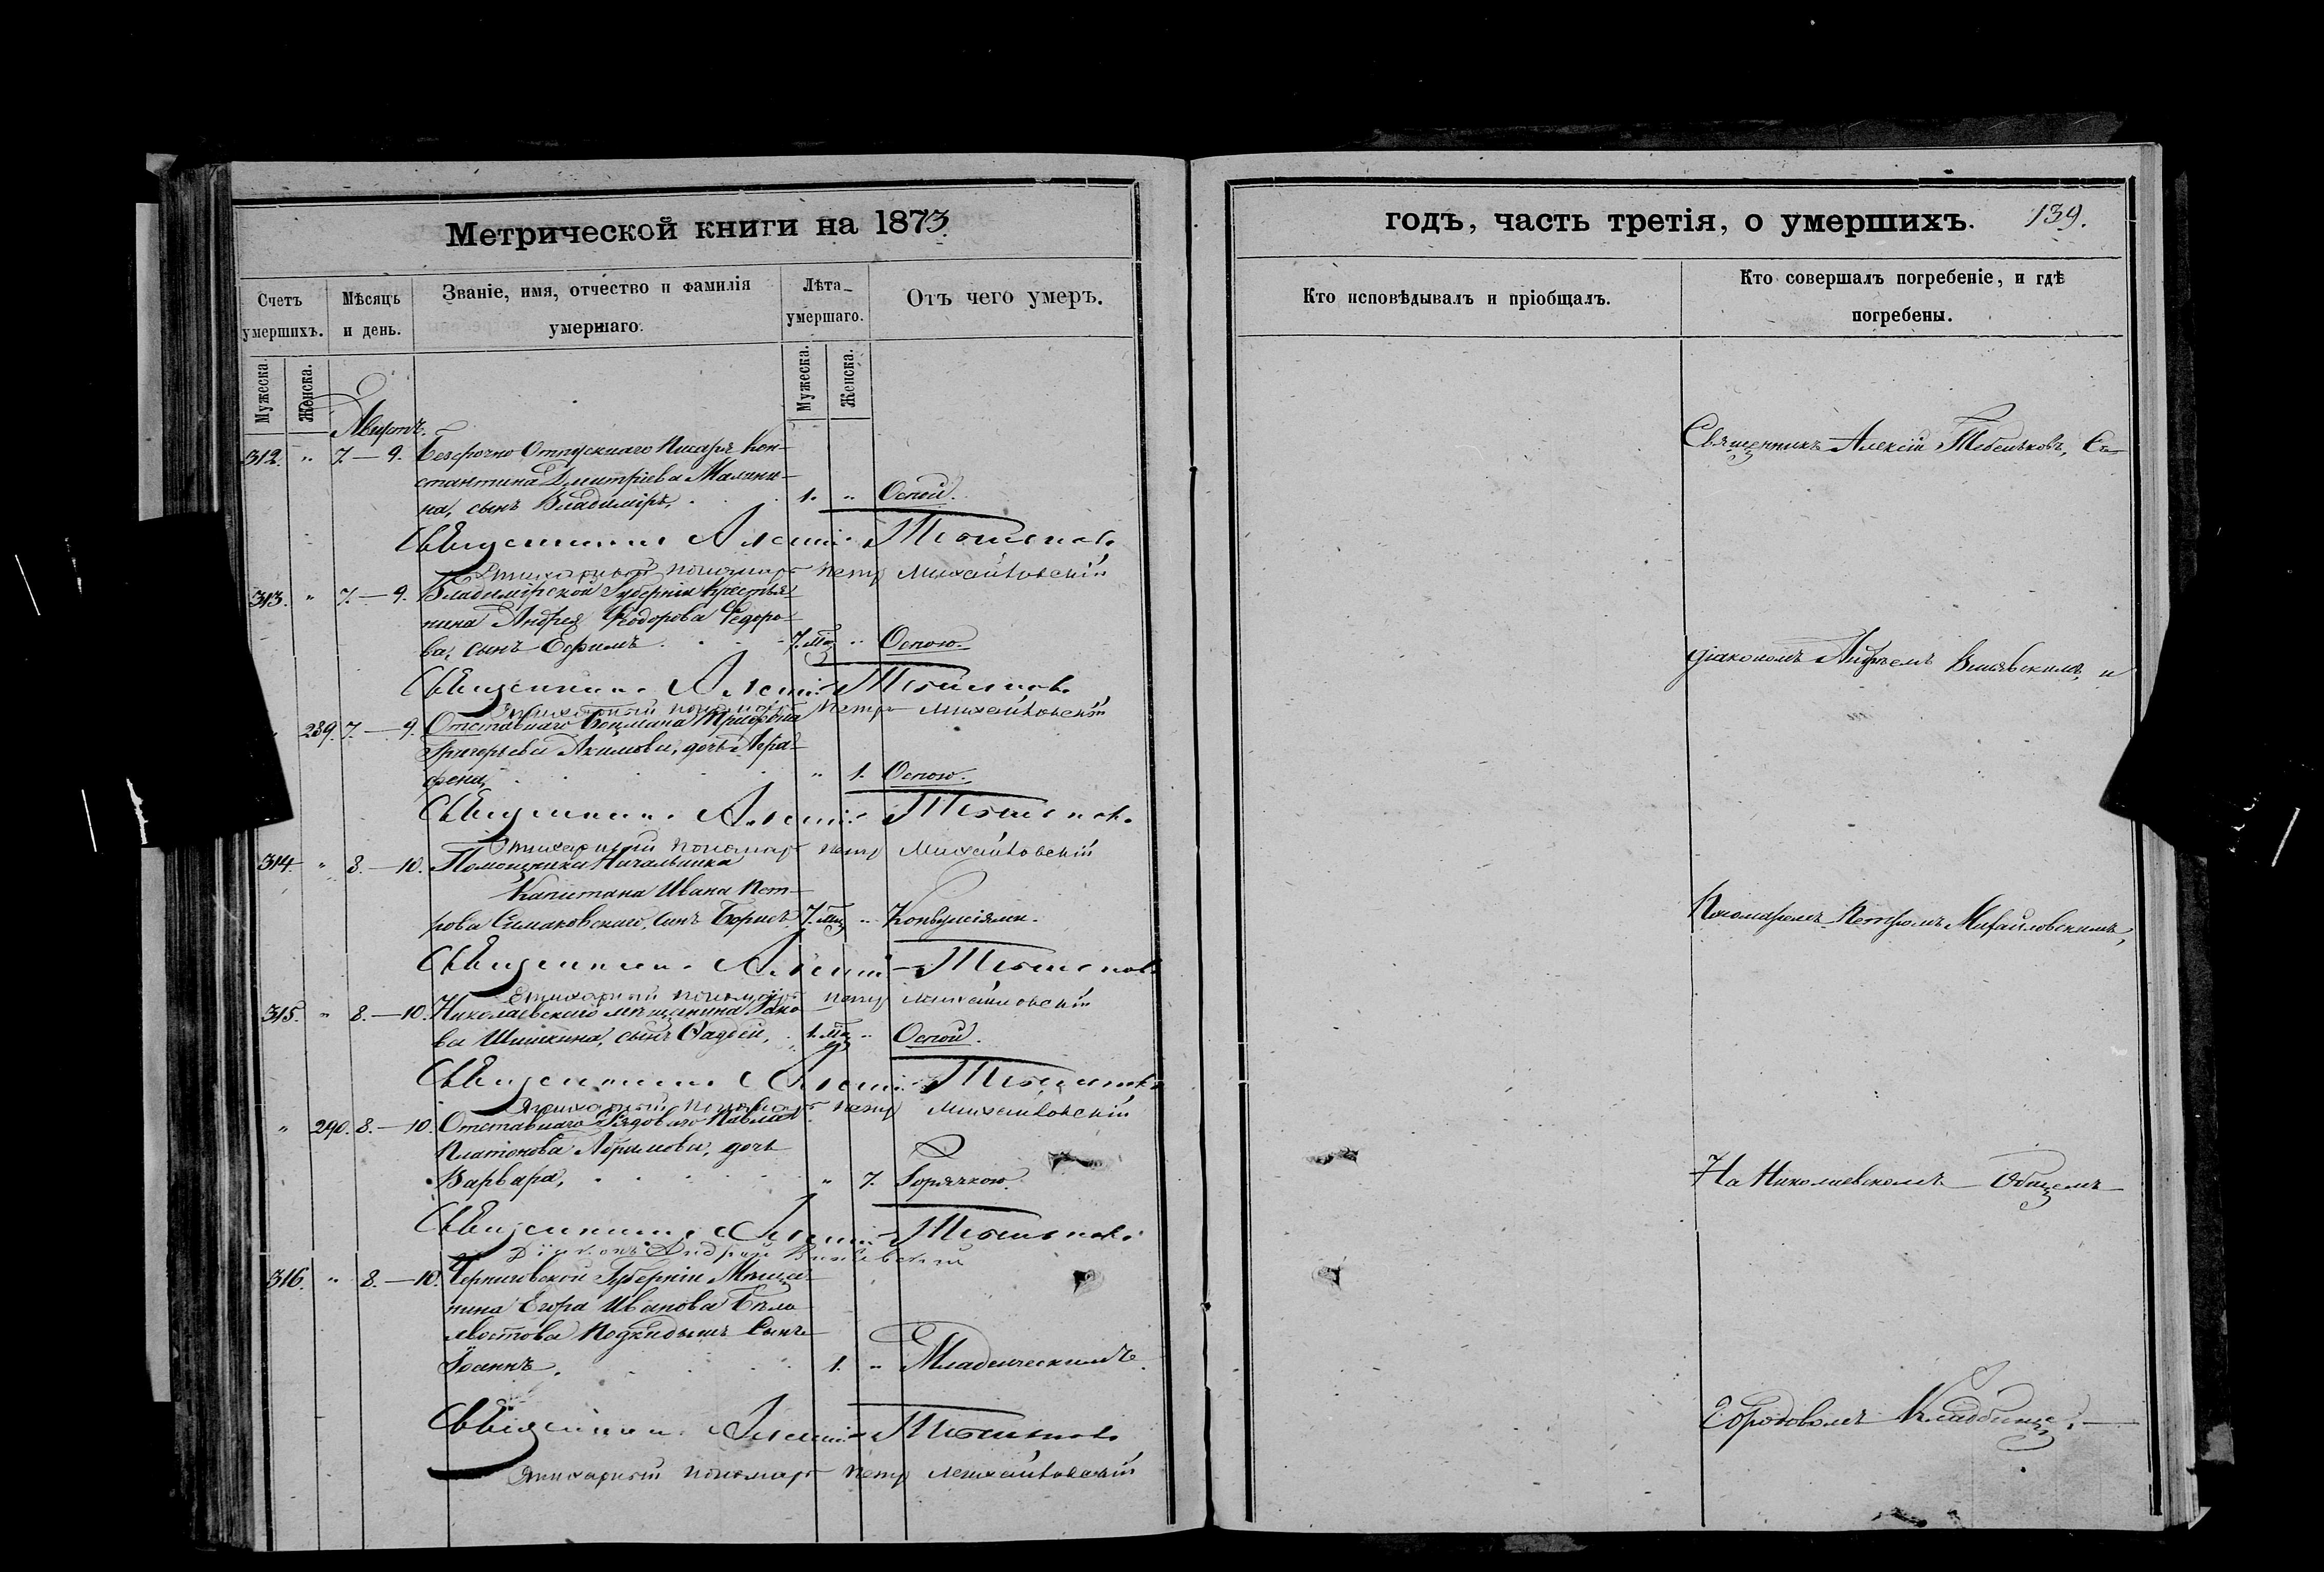 Метрической книги на 1873
Счетъ умершихъ.
Мѣсяцъ и день.
Званіе, имя, отчество и фамилія умершаго.
Лѣта умершаго.
Отъ чего умеръ.
Мужеска.
Женска.
Мужеска.
Женска.
Августъ.
312. " 7.—9. Безсрочно Отпускнаго Писаря Кон-
стантина Дмитріева Малини-
на, сынъ Владиміръ, 1. " Оспой.
Священникъ Алексій Тебеньковъ
Стихарный пономарь Петръ Михайловскій
313. " 7.—9. Владимірской Губерніи Крестья-
нина Андрея Ѳедорова Федоро-
ва, сынъ Ефимъ. 7. мѣ " Оспою.
Священникъ Алексій Тебеньковъ
Стихарный пономарь Петръ Михайловскій
" 289. 7.—9. Отставнаго Боцмана Григорія
Григорьева Акимова, дочь Агра-
фена, " 1. Оспою.
Священникъ Алексій Тебеньковъ
Стихарный пономарь Петръ Михайловскій
314. " 8.—10. Помощника Начальника
Капитана Ивана Пет-
рова Симаковскаго, сынъ Борисъ, 7. мѣ " Конвульсіями.
Священникъ Алексій Тебеньковъ
Стихарный пономарь Петръ Михайловскій
315. " 8.—10. Николаевскаго мѣщанина Яко-
ва Шишкина, сынъ Ѳадѣй, 1. мѣ " Оспой.
Священникъ Алексій Тебеньковъ
Стихарный пономарь Петръ Михайловскій
" 290. 8.—10. Отставнаго Рядоваго Павла
Платонова Абрамова, дочь
Варвара, " 7. Горячкою.
Священникъ Алексій Тебеньковъ
Діаконъ Андрей
316. " 8.—10. Черниговской Губерніи Мѣща-
нина Егора Иванова Бѣло-
хвостова Подкидышъ Сынъ
Іоаннъ. 1. " Младенческимъ.
Священникъ Алексій Тебеньковъ
Стихарный пономарь Петръ Михайловскій
годъ, часть третія, о умершихъ. 139.
Кто исповѣдывалъ и пріобщалъ.
Кто совершалъ погребеніе, и гдѣ погребены.
Священникъ Алексій Тебеньковъ, Съ
діакономъ Андреемъ и
Пономаремъ Петромъ Михайловскимъ,
На Николаевскомъ Общемъ
Городовомъ Кладбищѣ.